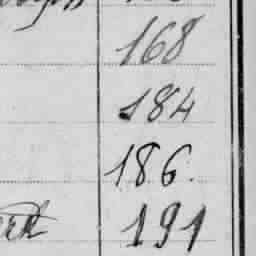 168
184
186.
191